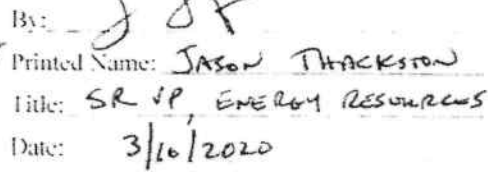 By:
Printed Name: JASON THACKSTON
Title: SR VP, ENERGY RESOURCES
Date: 3/10/2020